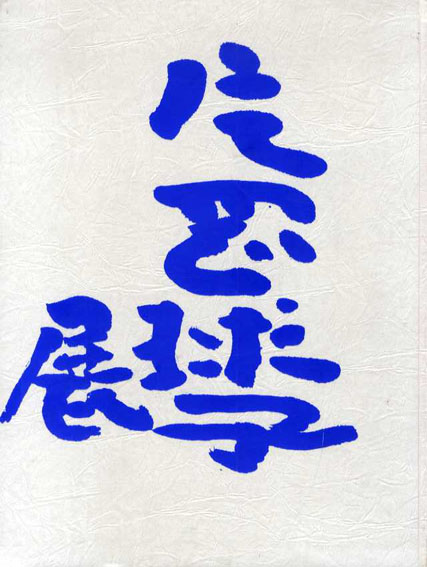 片岡球子
展